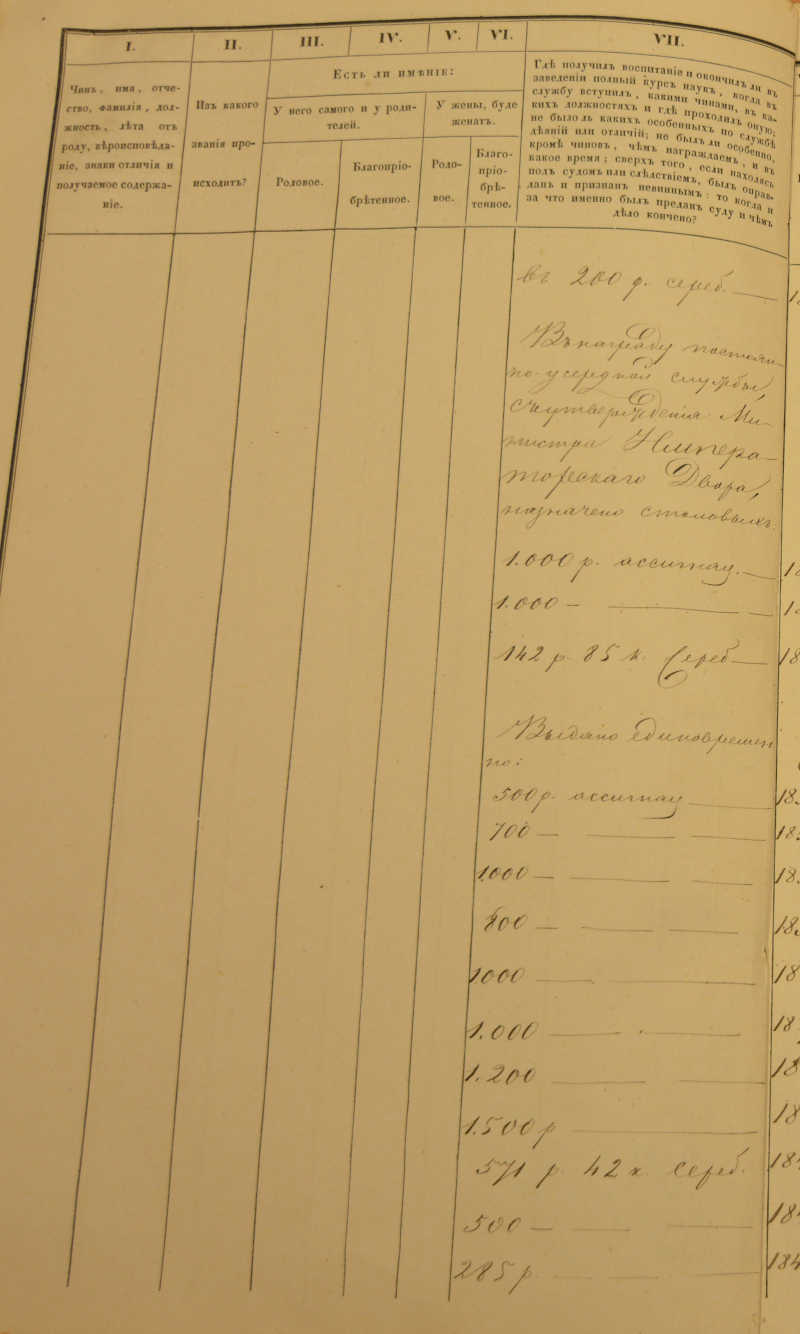 I.
II.
III.
IV.
V.
VI.
VII.
Чинъ, имя, отче-
ство, фамилія, дол-
жность, лѣта отъ
роду, вѣроисповѣда-
ніе, знаки отличія и
получаемое содержа-
ніе.
Изъ какого
званія про-
исходитъ?
Есть ли имѣніе:
У него самого и у роди-
телей.
У жены, буде
женатъ.
Родовое.
Благопріо-
брѣтенное.
Родо-
вое.
Благо-
пріо-
брѣ-
тенное.
Гдѣ получилъ воспитаніе и окончилъ ли въ
заведеніи полный курсъ наукъ, когда въ
службу вступилъ, какими чинами, въ ка-
кихъ должностяхъ и гдѣ проходилъ оную;
не было ль какихъ особенныхъ по службѣ
дѣяній или отличій; не былъ ли особенно,
кромѣ чиновъ, чѣмъ награждаемъ, и въ
какое время; сверхъ того, если находясь
подъ судомъ или слѣдствіемъ, былъ оправ-
данъ и признанъ невиннымъ: то когда и
за что именно былъ преданъ суду и чѣмъ
дѣло кончено?
въ 200 р. сереб. —
Въ награду постоян-
но-усердной службы
съ утвержденія Ми-
нистра Импера-
торскаго Двора,
назначено столовыхъ
1.000 р. ассигнац. —
1.000 —
142 р. 85 к. сереб —
Выдано единовремен
но:
500 р. ассигнац
700 —
1000 —
800 —
1000
1.000
1.200
1.500 р
571 р. 42 к. сереб.
500 —
285 р
18
18
18
18
18
18
18
18
18
18
18
184